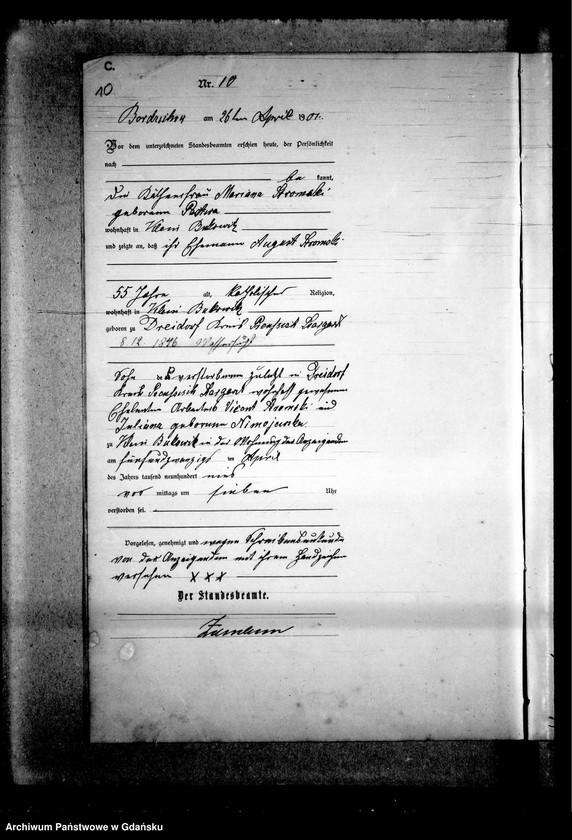 C.
10
Nr. 10
am 26ten April 1901.
Vor dem unterzeichneten Standesbeamten erschien heute, der Persönlichkeit
nach
be kannt,
die Käthnerfrau Mariana
geborene
wohnhaft in Klein Bukowitz
und zeigte an, daß ihr Ehemann August
55 Jahre alt, katholischer Religion,
wohnhaft in Klein Bukowitz
geboren zu Dreidorf Kreis Preußisch Stargard
8 12 1846
Sohn des verstorbenen zuletzt in Dreidorf
Kreis Preußisch Stargard wohnhaft gewesenen
Eheleuten Arbeiters Vicent und
Juliana geborenen
zu Klein Bukowitz in der Wohnung der Anzeigenden
am fünfundzwanzigsten April
des Jahres tausend neunhundert eins
vor mittags um sieben Uhr
verstorben sei.
Vorgelesen, genehmigt und wegen Schreibensunkunde
von der Anzeigenden mit ihrem Handzeichen
versehen X X X
Der Standesbeamte.
Archiwum Państwowe w Gdańsku